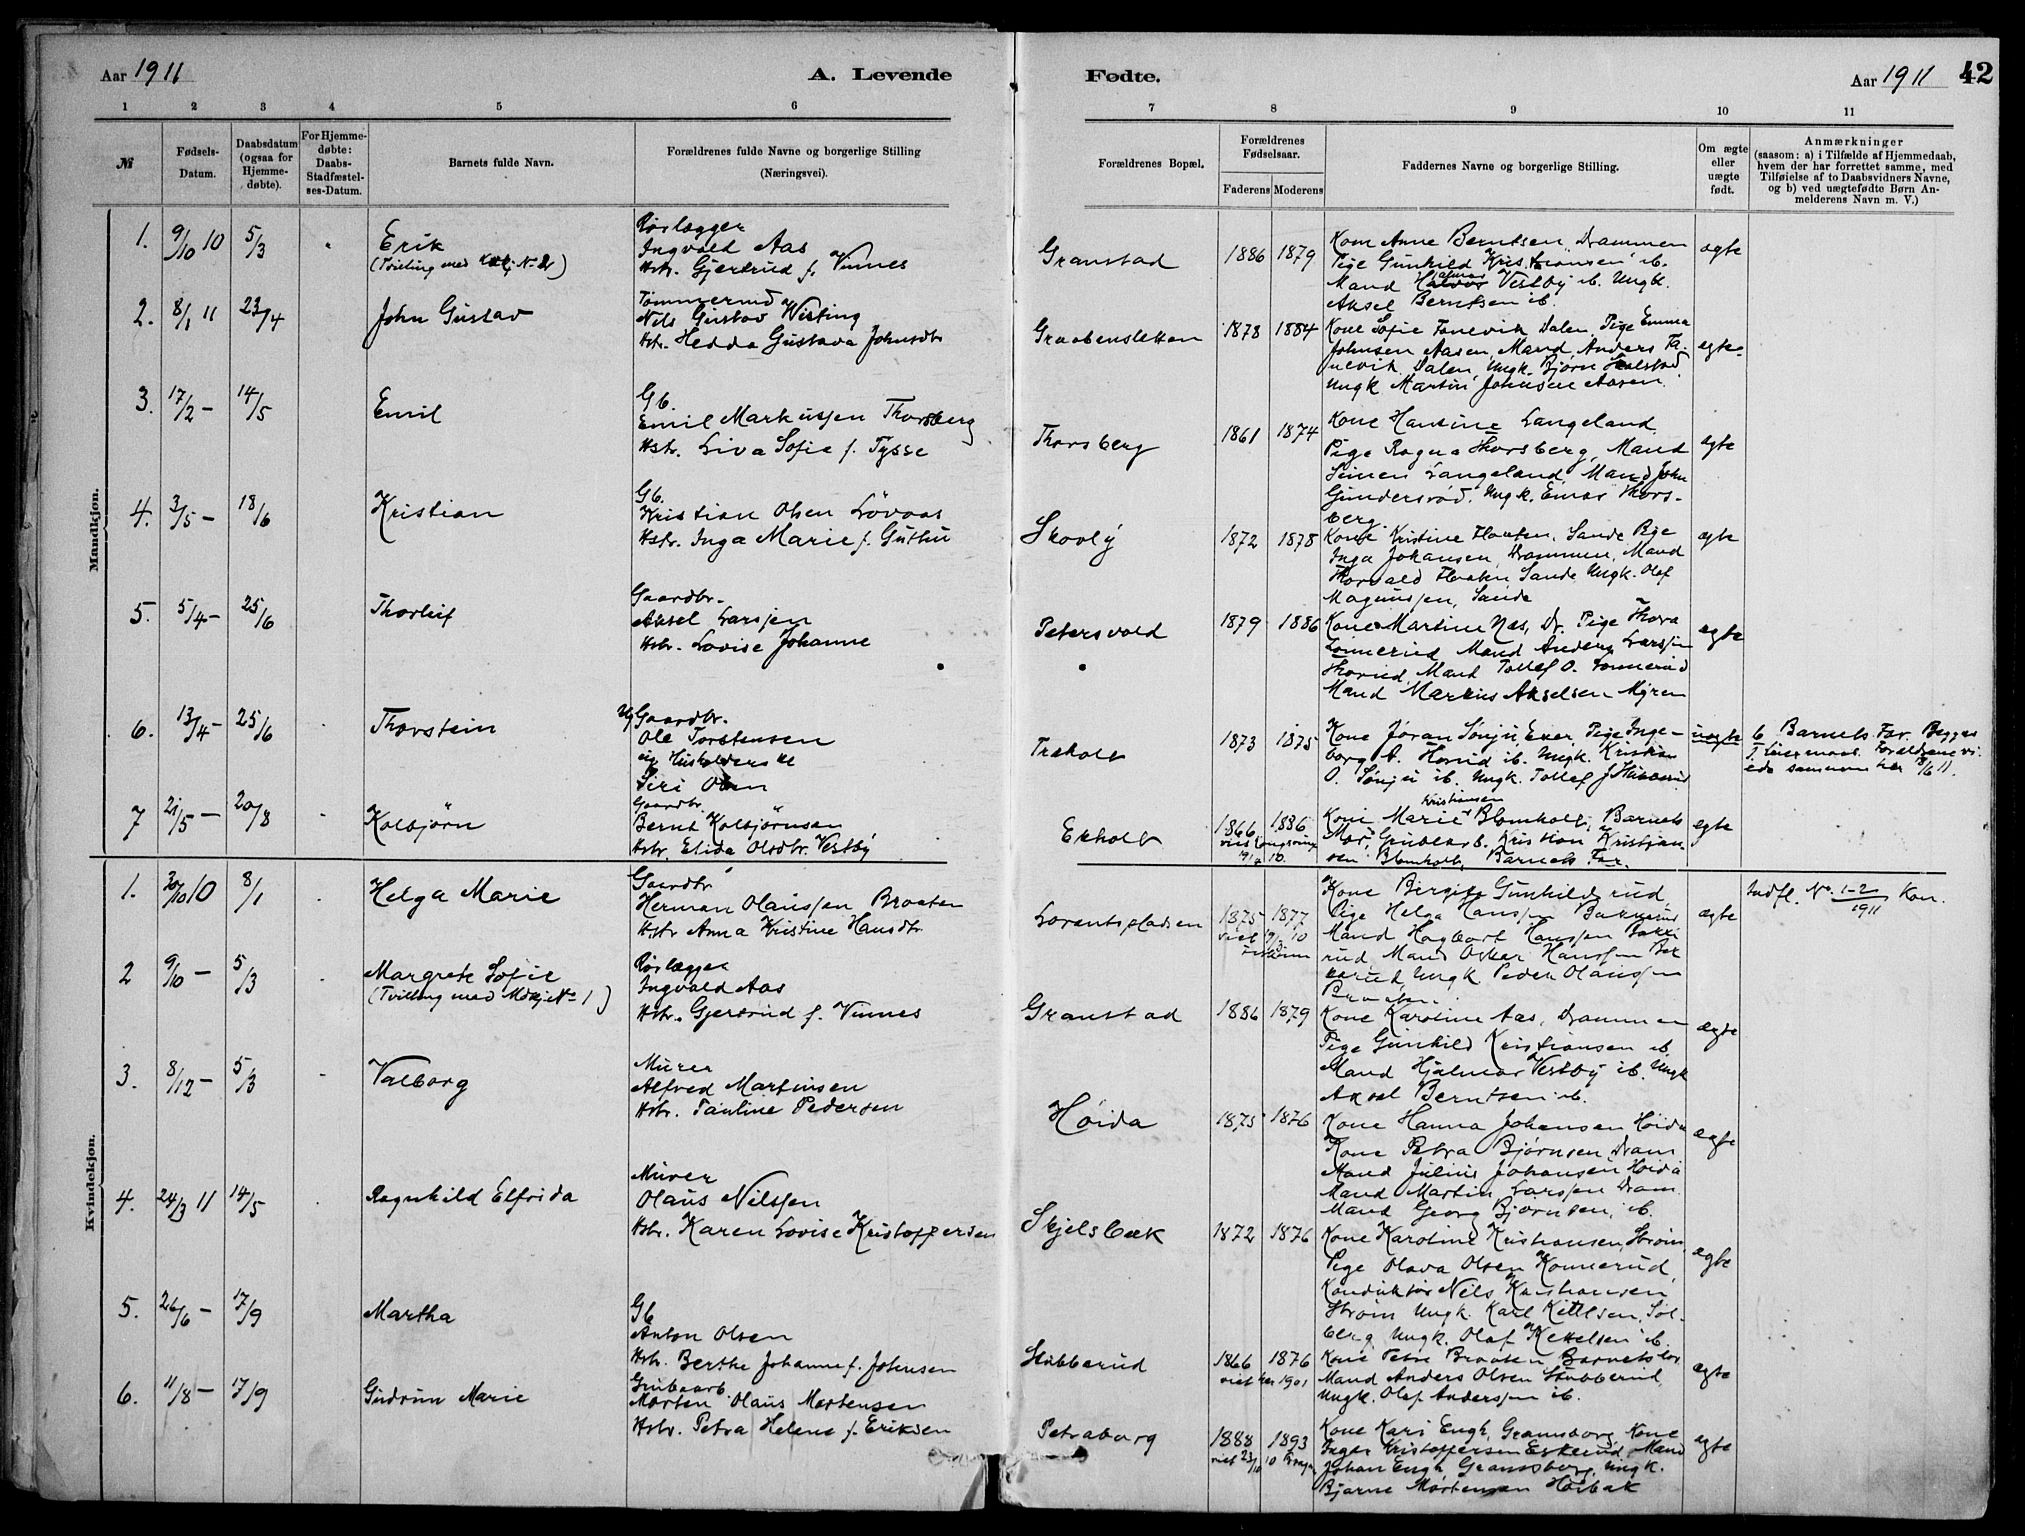 Aar 1911
A. Levende
Fødte.
Aar 1911
42
1 2 3 4 5 6
7 8 9 10 11
№
Fødsels-
Datum.
Daabsdatum
(ogsaa for
Hjemme-
døbte).
For Hjemme-
døbte:
Daabs-
Stadfæstel-
ses-Datum.
Barnets fulde Navn.
Forældrenes fulde Navne og borgerlige Stilling
(Næringsvei).
Forældrenes Bopæl.
Forældrenes
Fødselsaar.
Faderens Moderens
Faddernes Navne og borgerlige Stilling.
Om ægte
eller
uægte
født.
Anmærkninger
(saasom: a) i Tilfælde af Hjemmedaab,
hvem der har forrettet samme, med
Tilføielse af to Daabsvidners Navne,
og b) ved uægtefødte Børn An-
melderens Navn m. V.)
Mandkjøn.
1. 9/10 10 5/3
Erik
(Tvilling med Kvkj No 2)
Rørlægger
Ingvald Aas
Hstr. Gjertrud f. Vinnes
Granstad
1886 1879
Kone Anne Berntsen, Drammen
Pige Gunhild Kristiansen ib.
Mand Hjalmar Vestby ib. Ungk.
Aksel Berntsen ib.
ægte
2. 8/1 11 23/4
John Gustav
Nils Gustav Wisting
Hstr. Hedda Gustava Johnsdtr
Graabensletten
1878 1884
Kone Sofie Tanevik Dalen, Pige Emma
Johnsen Aasen, Mand Anders Ta-
nevik Dalen, Ungk. Bjørn
Ungk Martin Johnsen Aasen.
ægte
3. 17/2 – 14/5
Emil
Gb.
Emil Markussen Thorsberg
Hstr. Liva Sofie f. Tysse
Thorsberg
1861 1874
Kone Hansine Langeland,
Pige Ragna Thorsberg, Mand
Simen Langeland, Mand John
Gundersrød, Ungk. Einar Thors-
berg.
ægte
4. 3/5 – 18/6
Kristian
Gb.
Kristian Olsen Løvaas
Hstr. Inga Marie f. Guthu
Skovly
1872 1878
Kone Kristine Flaaten, Sande Pige
Inga Johansen, Drammen, Mand
Thorvald Flaaten, Sande Ungk. Olaf
Magnussen, Sande
ægte
5. 5/4 – 25/6
Thorleif
Gaardbr.
Aksel Larssen
Hstr. Lovise Johanne
Petersvold
1879 1886
Kone Martine Næs, Dr. Pige Thora
Mand Anders Larssen
Mand Tollef O.
Mand Markus Akselsen Myren
ægte
6. 13/4 – 25/6
Thorstein
Ug Gaardbr.
Ole Torstensen
og Husholderske
Siri Olsen
Træholt
1873 1875
Kone Jøran Sønju Eker Pige Inge-
borg A. Horud ib. Ungk. Kristian
O. Sønju ib. Ungk. Tollef J
uægte
6 Barnets Far. Begges
1. Leiermaal. Forældrene vi-
ede sammen her 18/6 11.
7 21/5 – 20/8
Kolbjørn
Gaardbr.
Bernt Kolbjørnsen
Hstr. Elida Olsdtr. Vestby
Ekholt
1866 1886
Kone Marie Kristiansen Blomholt, Barnets
Mor, Grubearb. Kristian Kristian-
sen Blomholt, Barnets Far.
ægte
Kvindekjøn.
1. 30/10 10 8/1
Helga Marie
Gaardbr
Herman Olaussen Braaten
Hstr Anna Kristine Hansdtr.
Lorentspladsen
1875 1877
Kone Birgite Gunhildsrud,
Pige Helga Hanssen Bakkerud
Mand Hagbart Hanssen Bakke-
rud Mand Oskar Hanssen Bak-
kerud, Ungk Peder Olaussen
Braaten.
ægte
Indfl. No. 1-2/1911 Kon.
2 9/10 – 5/3
Margrete Sofie
(Tvilling med Mdkj No 1)
Rørlægger
Ingvald Aas
Hstr. Gjertrud f. Vinnes
Granstad
1886 1879
Kone Karoline Aas, Drammen
Pige Gunhild Kristiansen ib.
Mand Hjalmar Vestby ib. Ungk
Aksel Berntsen ib.
ægte
3. 8/12 – 5/3
Valborg
Murer
Alfred Martinsen
Hstr. Pauline Pedersen
Høida
1875 1876
Kone Hanna Johansen Høida
Kone Petra Bjørnsen, Dram
Mand Julius Johansen Høida
Mand Martin Larssen Dram.
Mand Georg Bjørnsen, ib.
ægte
4. 24/3 11 14/5
Ragnhild Elfrida
Murer
Olaus Nilssen
Hstr. Karen Lovise Kristoffersen
Skjelsbæk
1872 1876
Kone Karoline Kristiansen, Strøm
Pige Olava Olsen Konnerud,
Konduktør Nils Kristiansen
Strøm Ungk. Karl Kittilsen, Sol-
berg Ungk. Olaf Kittelsen ib.
ægte
5. 26/6 – 17/9
Martha
Gb
Anton Olsen
Hstr. Berthe Johanne f. Johnsen
Stubberud
1866 1876
viet her 1901
Kone Petra Braaten, Barnets Far
Mand Anders Olsen Stubberud,
Ungk. Olaf Anderssen ib.
ægte
6. 11/8 – 17/9
Gudrun Marie
Grubearb.
Morten Olaus Mortensen
Hstr. Petra Helene f. Eriksen
Petraborg
1888 1893
Kone Kari Engh, Gramsborg, Kone
Inger Kristoffersen Eskerud, Mand
Johan Engh, Gramsborg, Ungk.
Bjarne Mortensen Høibak
ægte